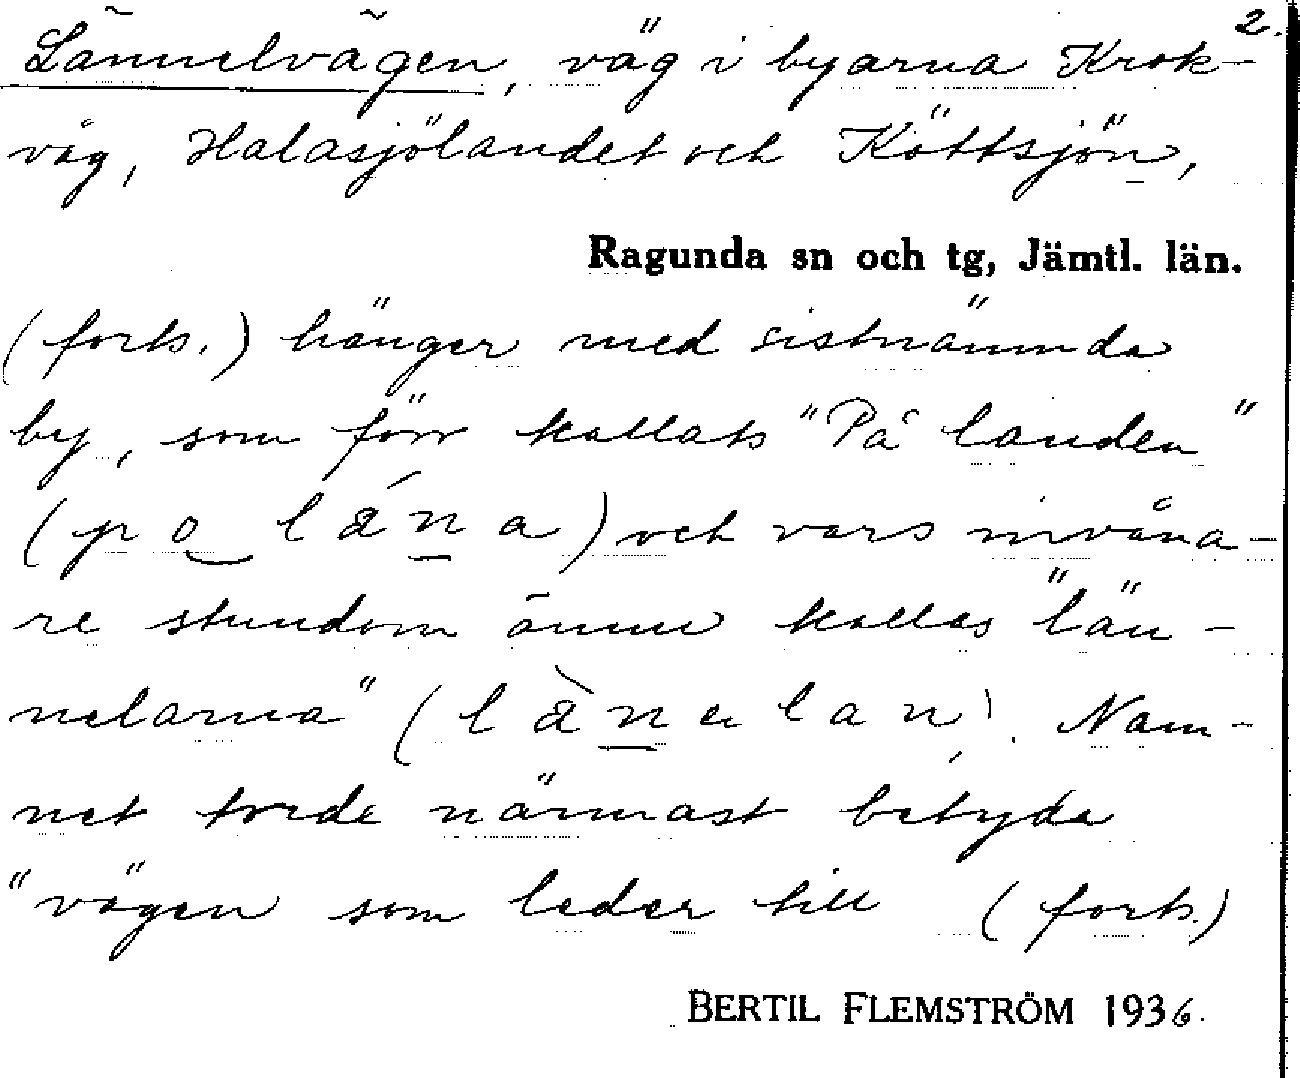 2.
Lännelvägen, väg i byarna Krok-
våg, Halasjölandet och Köttsjön,
Ragunda sn och tg, Jämtl. län.
(forts.) hänger med sistnämnda
by, som förr kallats "På landen"
(po lána) och vars invåna-
re stundom ännu kallas "län-
nelarna" (lànelan). Nam-
net torde närmast betyda
"vägen som leder till (forts.)
BERTIL FLEMSTRÖM 1936.